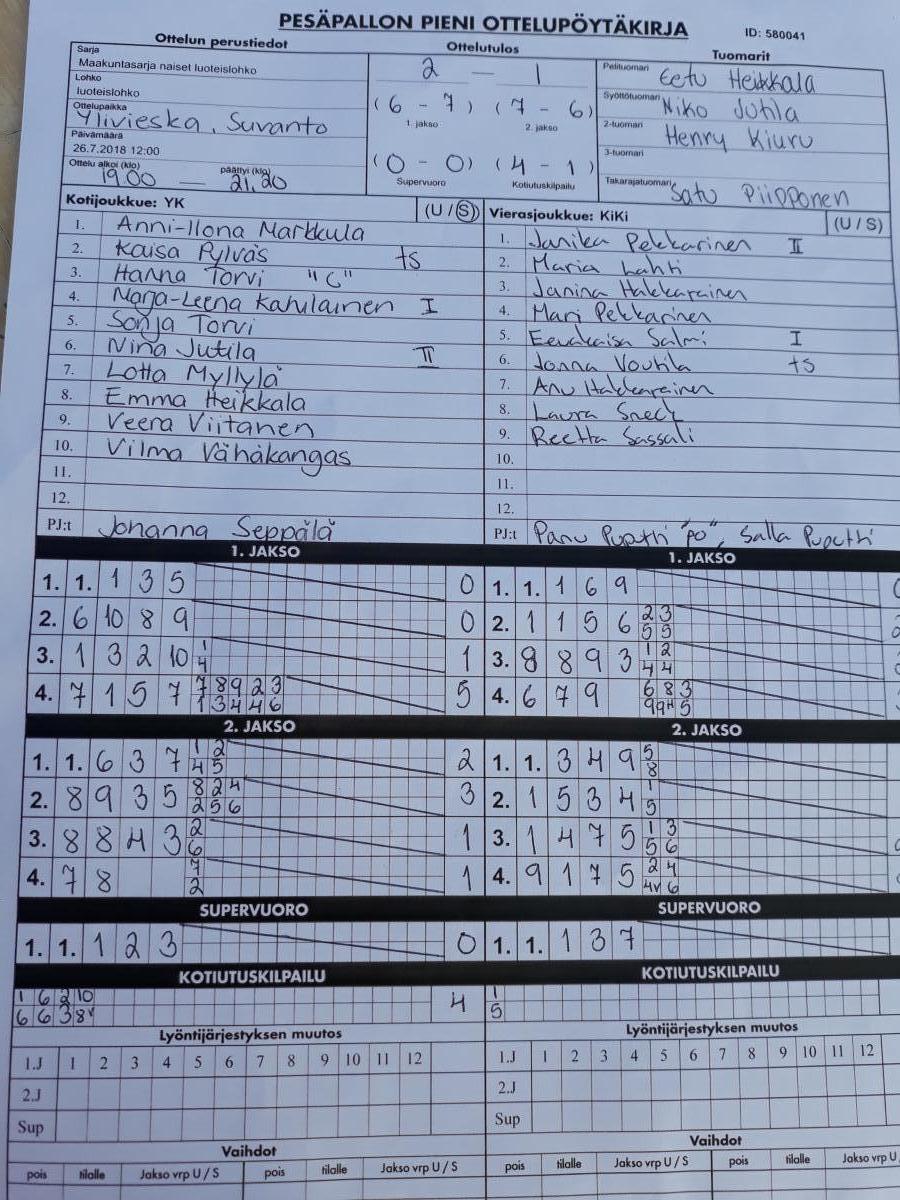 PESÄPALLON PIENI OTTELUPÖYTÄKIRJA
ID: 580041
Ottelun perustiedot
Ottelutulos
Tuomarit
Sarja
Maakuntasarja naiset luoteislohko
Lohko
luoteislohko
Ottelupaikka
Ylivieska, Suvanto
Päivämäärä
26.7.2018 12:00
Ottelu alkoi (klo) päättyi (klo)
19.00 — 21.20
2 — 1
(6 - 7) (7 - 6)
1. jakso 2. jakso
(0 - 0) (4 - 1)
Supervuoro Kotiutuskilpailu
Pelituomari Eetu Heikkala
Syöttötuomari Niko Jutila
2-tuomari Henry Kiuru
3-tuomari
Takarajatuomari Satu Piipponen
Kotijoukkue: YK (U / S)
1. Anni-Ilona Markkula
2. Kaisa Pylväs ts
3. Hanna Torvi "C"
4. Marja-Leena Katulainen I
5. Sonja Torvi
6. Nina Jutila II
7. Lotta Myllylä
8. Emma Heikkala
9. Veera Viitanen
10. Vilma Vähäkangas
11.
12.
PJ:t Johanna Seppälä
Vierasjoukkue: KiKi (U / S)
1. Janika Pekkarinen II
2. Maria Lahti
3. Janina Hakkarainen
4. Mari Pekkarinen
5. Eevakaisa Salmi I
6. Jonna Voutila ts
7. Anu Hakkarainen
8. Laura Sneck
9. Reetta Sassali
10.
11.
12.
PJ:t Panu Puputti "po", Salla Puputti
1. JAKSO
1. 1. 1 3 5 0
2. 6 10 8 9 0
3. 1 3 2 10 1 1
4
4. 7 1 5 7 7 8 9 2 3 5
1 3 4 4 6
2. JAKSO
1. 1. 6 3 7 1 2 2
4 5
2. 8 9 3 5 8 2 4 3
2 5 6
3. 8 8 4 3 2 1
6
4. 7 8 7 1
2
SUPERVUORO
1. 1. 1 2 3 0
KOTIUTUSKILPAILU
1 6 2 10 4
6 6 3 8v
Lyöntijärjestyksen muutos
1.J 1 2 3 4 5 6 7 8 9 10 11 12
2.J
Sup
Vaihdot
pois tilalle Jakso vrp U / S pois tilalle Jakso vrp U / S
1. JAKSO
1. 1. 1 6 9
2. 1 1 5 6 2 3
5 5
3. 8 8 9 3 1 2
4 4
4. 6 7 9 6 8 3
9 9H 5
2. JAKSO
1. 1. 3 4 9 5
8
2. 1 5 3 4 1
5
3. 1 4 7 5 1 3
5 6
4. 9 1 7 5 2 4
4v 6
SUPERVUORO
1. 1. 1 3 7
KOTIUTUSKILPAILU
1
5
Lyöntijärjestyksen muutos
1.J 1 2 3 4 5 6 7 8 9 10 11 12
2.J
Sup
Vaihdot
pois tilalle Jakso vrp U / S pois tilalle Jakso vrp U